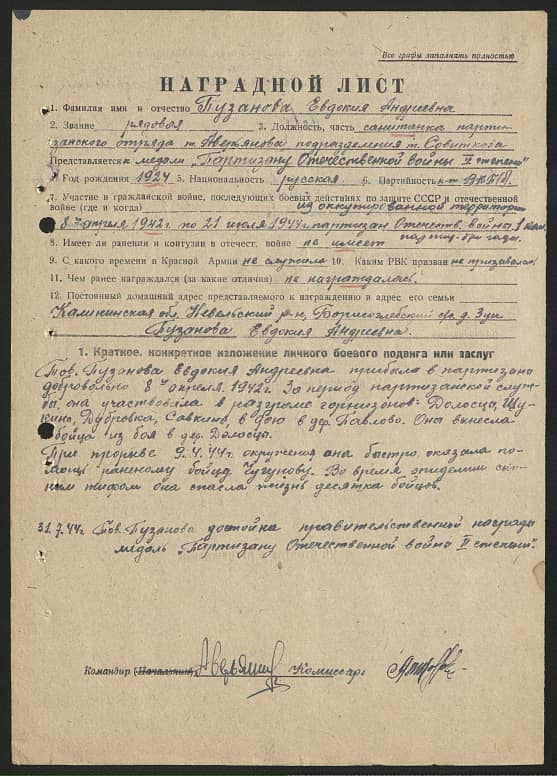 Все графы заполнять полностью
НАГРАДНОЙ ЛИСТ
1. Фамилия имя и отчество Пузанова Евдокия Андреевна
2. Звание рядовая 3. Должность, часть санитарка парти-
занского отряда т. Аверьянова подразделения т.
Представляется к медали „Партизану Отечественной войны II степени"
4. Год рождения 1924 5. Национальность русская 6. Партийность к-т ВКП(б)
7. Участие в гражданской войне, последующих боевых действиях по защите СССР и отечественной
войне (где и когда) на оккупированной территории
8го апреля 1942 г по 21 июля 1944г. партизан Отечеств. война 1
партиз. бригады.
8. Имеет ли ранения и контузии в отечест. войне не имеет
9. С какого времени в Красной Армии не служила 10. Каким РВК призван не призывалась
11. Чем ранее награждался (за какие отличия) не награждалась.
12. Постоянный домашний адрес представляемого к награждению и адрес его семьи
Калининская обл. Невельский р-н, Борисоглебский с/с д.
Пузанова Евдокия Андреевна.
1. Краткое, конкретное изложение личного боевого подвига или заслуг
Тов. Пузанова Евдокия Андреевна прибыла в партизаны
добровольно 8го апреля 1942г. За период партизанской служ-
бы, она участвовала в разгроме гарнизонов: Долосца, Щу-
кино, Дубровка, Савкино, в бою в дер. Павлово. Она вынесла
бойца из боя в дер. Долосца.
При прорыве 9.4.44г. окружения она быстро оказала по-
мощь раненому бойцу Чугунову. Во время эпидемии сып-
ным тифом она спасла жизнь десятка бойцов.
31.7.44г Тов. Пузанова достойна правительственной награды
медаль „Партизану Отечественной войны II степени".
Командир (Начальник) Комиссар